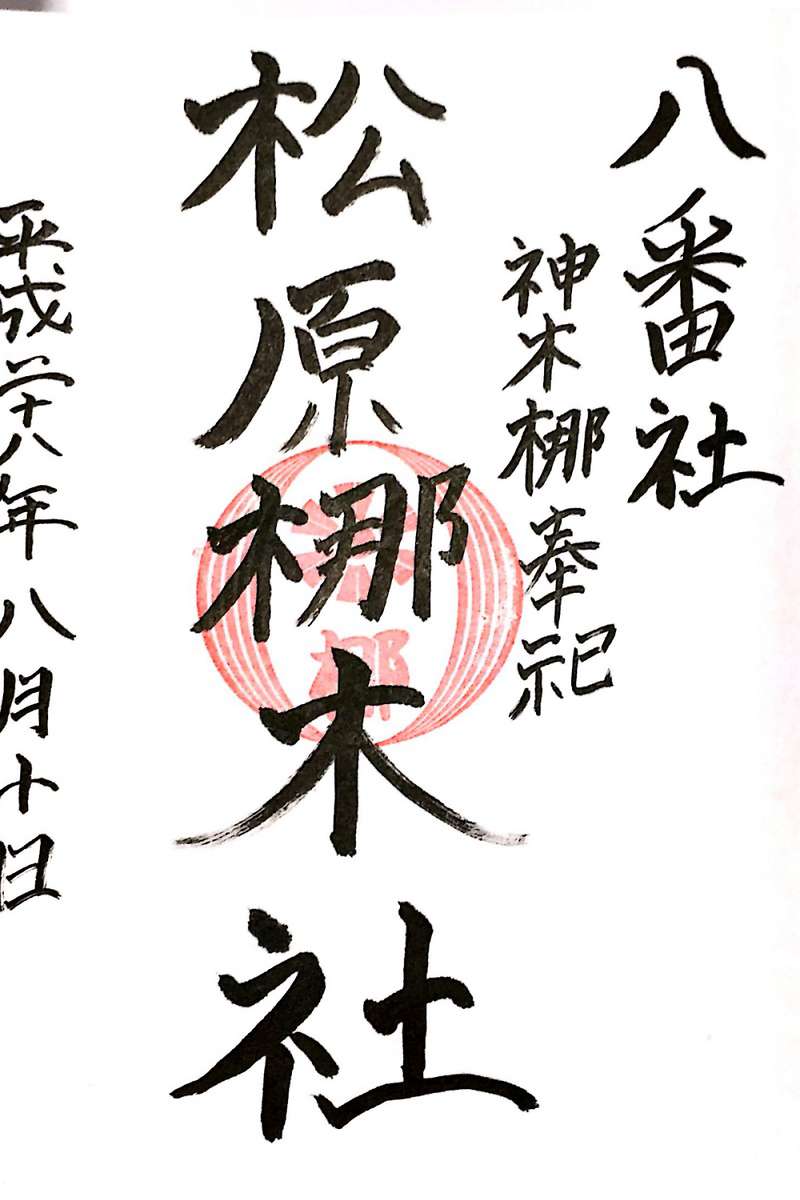 八番社
神木梛奉祀
松原梛木社
梛
平成二十八年八月十日